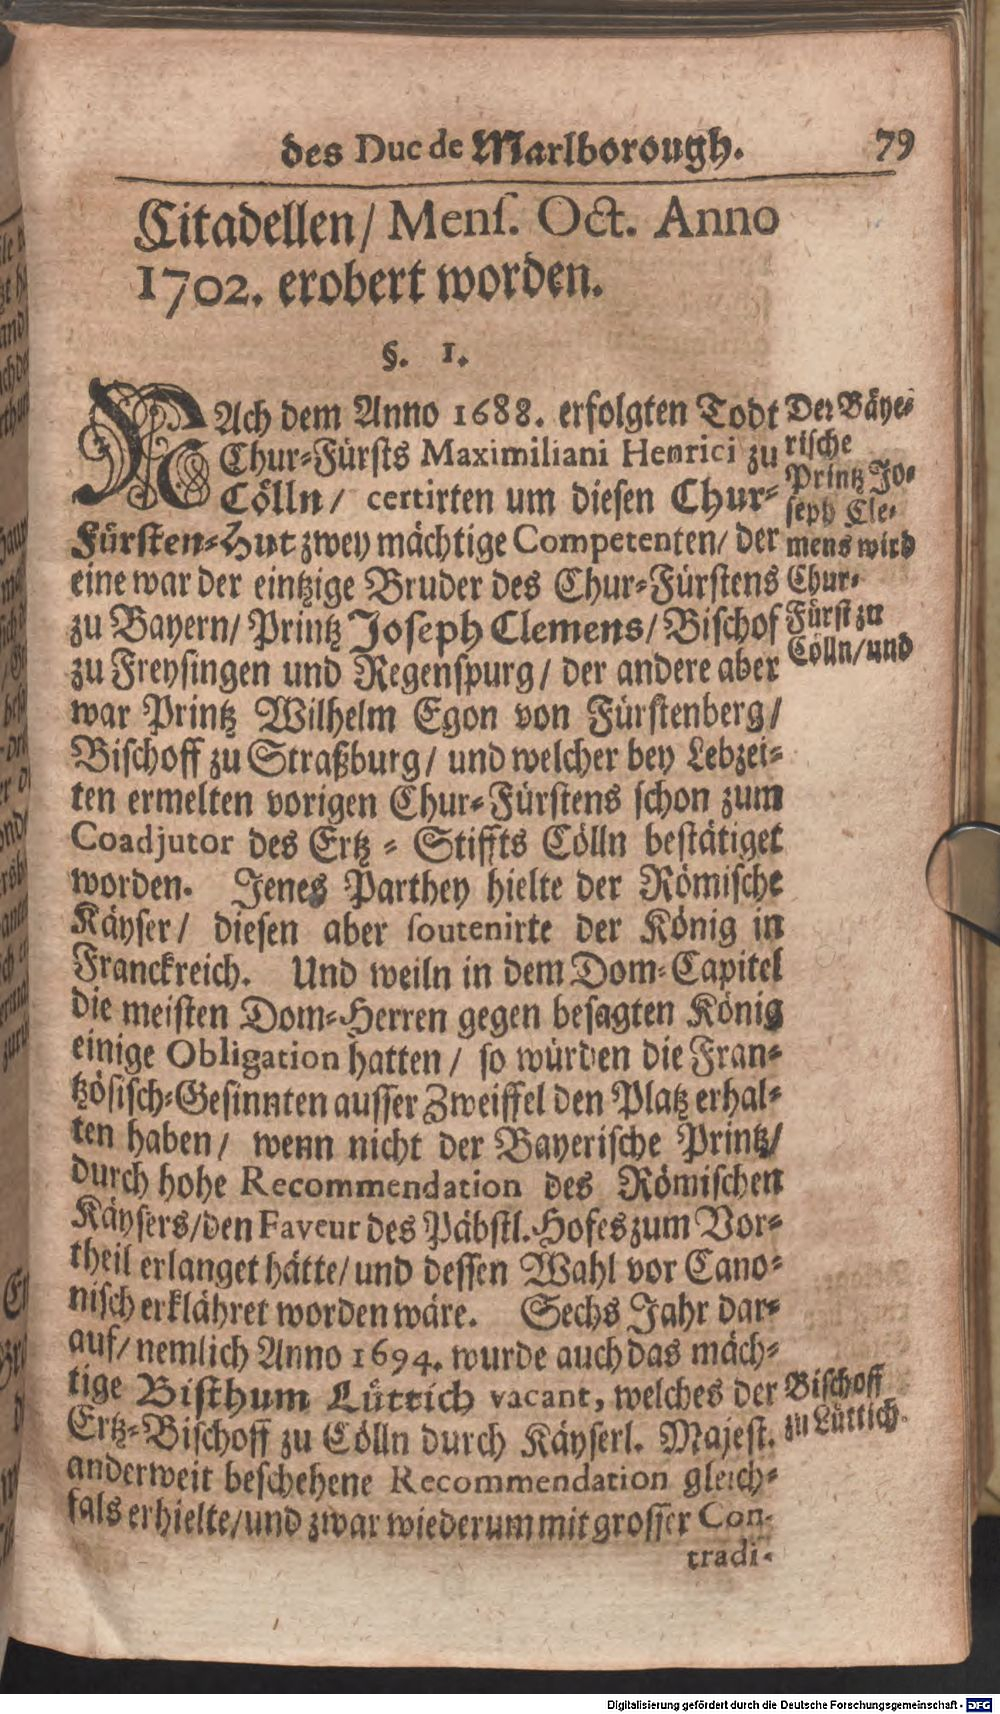 des Duc de Marlborough. 79
Citadellen/ Menſ. Oct. Anno
1702. erobert worden.
§. 1.
NAch dem Anno 1688. erfolgten Todt
Chur-Fürſts Maximiliani Henrici zu
Cölln/ certirten um dieſen Chur-
Fürſten-Hut zwey mächtige Competenten/ der
eine war der eintzige Bruder des Chur-Fürſtens
zu Bayern/ Printz Joſeph Clemens/ Biſchof
zu Freyſingen und Regenſpurg/ der andere aber
war Printz Wilhelm Egon von Fürſtenberg/
Biſchoff zu Straßburg/ und welcher bey Lebzei-
ten ermelten vorigen Chur-Fürſtens ſchon zum
Coadjutor des Ertz-Stiffts Cölln beſtätiget
worden. Jenes Parthey hielte der Römiſche
Käyſer/ dieſen aber ſoutenirte der König in
Franckreich. Und weiln in dem Dom-Capitel
die meiſten Dom-Herren gegen beſagten König
einige Obligation hatten/ ſo würden die Fran-
tzöſiſch-Geſinnten auſſer Zweiffel den Platz erhal-
ten haben/ wenn nicht der Bayeriſche Printz/
durch hohe Recommendation des Römiſchen
Käyſers/ den Faveur des Päbſtl. Hofes zum Vor-
theil erlanget hätte/ und deſſen Wahl vor Cano-
niſch erklähret worden wäre. Sechs Jahr dar-
auf/ nemlich Anno 1694. wurde auch das mäch-
tige Biſthum Lüttich vacant, welches der
Ertz-Biſchoff zu Cölln durch Käyſerl. Majeſt.
anderweit beſchehene Recommendation gleich-
fals erhielte/ und zwar wiederum mit groſſer Con-
tradi-
Der Bäye-
riſche
Printz Jo-
ſeph Cle-
mens wird
Chur-
Fürſt zu
Cölln/ und
Biſchoff
zu Lüttich.
Digitalisierung gefördert durch die Deutsche Forschungsgemeinschaft - DFG